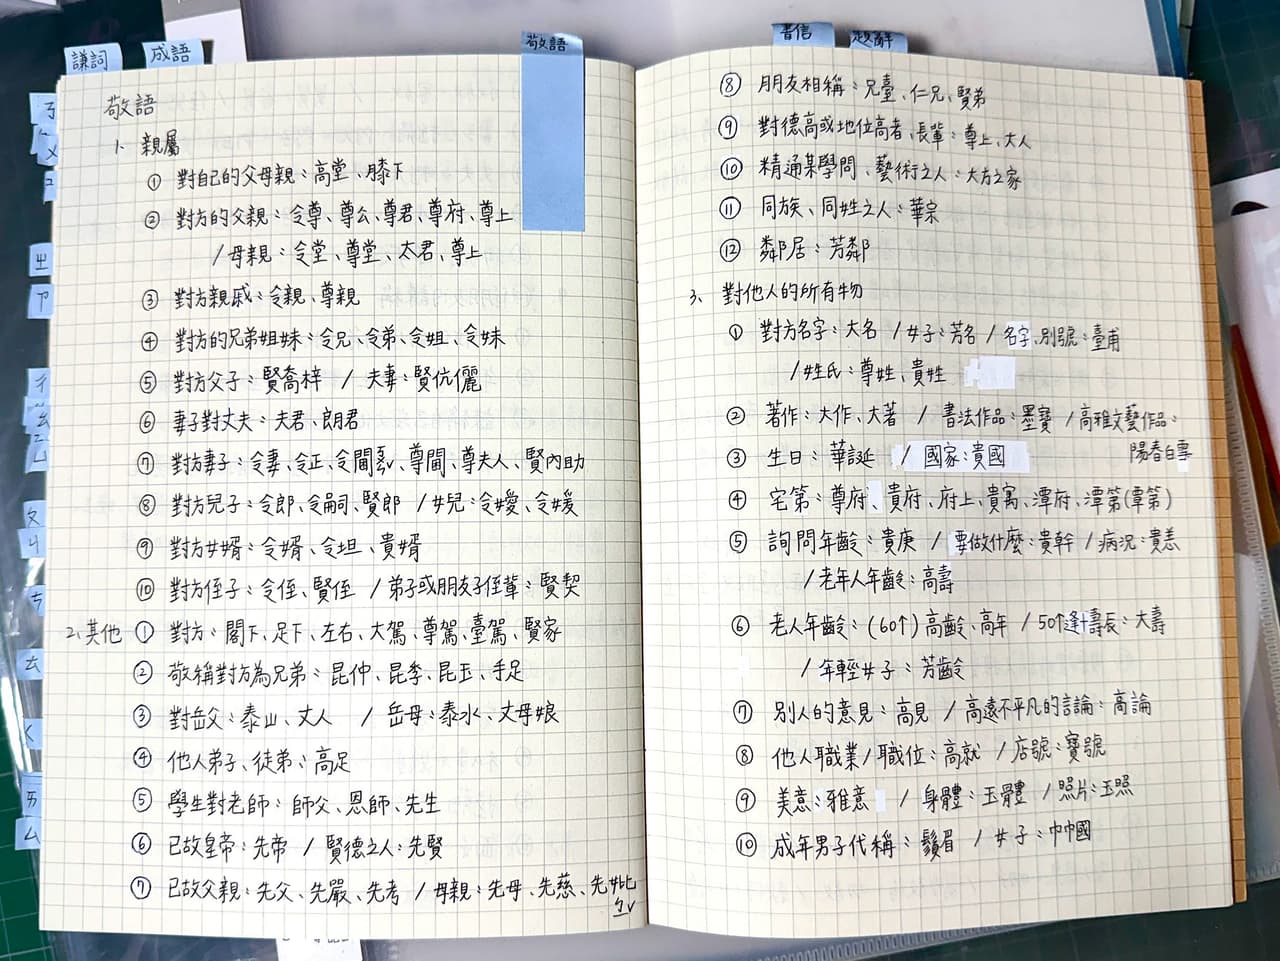 謙詞
成語
敬語
書信
題辭
ㄋ
ㄅ
ㄨ
ㄓ
ㄗ
ㄔ
ㄠ
ㄆ
ㄐ
ㄘ
ㄊ
ㄑ
ㄞ
ㄙ
敬語
1、親屬
① 對自己的父母親:高堂、膝下
② 對方的父親:令尊、尊公、尊君、尊府、尊上
/母親:令堂、尊堂、太君、尊上
③ 對方親戚:令親、尊親
④ 對方的兄弟姐妹:令兄、令弟、令姐、令妹
⑤ 對方父子:賢喬梓 / 夫妻:賢伉儷
⑥ 妻子對丈夫:夫君、郎君
⑦ 對方妻子:令妻、令正、令閫、尊閫、尊夫人、賢內助
⑧ 對方兒子:令郎、令嗣、賢郎 / 女兒:令嬡、令媛
⑨ 對方女婿:令婿、令坦、貴婿
⑩ 對方侄子:令侄、賢侄 / 弟子或朋友子侄輩:賢契
2、其他 ① 對方:閣下、足下、左右、大駕、尊駕、臺駕、賢家
② 敬稱對方為兄弟:昆仲、昆季、昆玉、手足
③ 對岳父:泰山、丈人 / 岳母:泰水、丈母娘
④ 他人弟子、徒弟:高足
⑤ 學生對老師:師父、恩師、先生
⑥ 已故皇帝:先帝 / 賢德之人:先賢
⑦ 已故父親:先父、先嚴、先考 / 母親:先母、先慈、先妣
ㄅㄧˇ
⑧ 朋友相稱:兄臺、仁兄、賢弟
⑨ 對德高或地位高者、長輩:尊上、大人
⑩ 精通某學問、藝術之人:大方之家
⑪ 同族、同姓之人:華宗
⑫ 鄰居:芳鄰
3、對他人的所有物
① 對方名字:大名 / 女子:芳名 / 名字、別號:臺甫
/姓氏:尊姓、貴姓
② 著作:大作、大著 / 書法作品:墨寶 / 高雅文藝作品:
陽春白雪
③ 生日:華誕 / 國家:貴國
④ 宅第:尊府、貴府、府上、貴寓、潭府、潭第(覃第)
⑤ 詢問年齡:貴庚 / 要做什麼:貴幹 / 病況:貴恙
/老年人年齡:高壽
⑥ 老人年齡:(60↑)高齡、高年 / 50↑逢十壽長:大壽
/ 年輕女子:芳齡
⑦ 別人的意見:高見 / 高遠不平凡的言論:高論
⑧ 他人職業/職位:高就 / 店號:寶號
⑨ 美意:雅意 / 身體:玉體 / 照片:玉照
⑩ 成年男子代稱:鬚眉 / 女子:巾幗